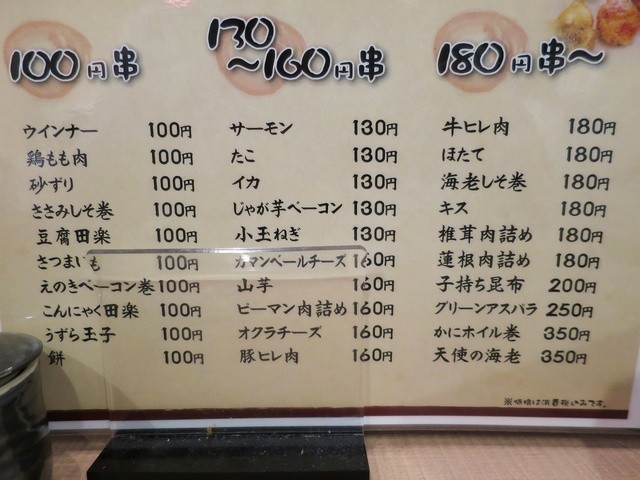 100円串
ウインナー 100円
鶏もも肉 100円
砂ずり 100円
ささみしそ巻 100円
豆腐田楽 100円
さつまいも 100円
えのきベーコン巻 100円
こんにゃく田楽 100円
うずら玉子 100円
餅 100円
130～160円串
サーモン 130円
たこ 130円
イカ 130円
じゃが芋ベーコン 130円
小玉ねぎ 130円
カマンベールチーズ 160円
山芋 160円
ピーマン肉詰め 160円
オクラチーズ 160円
豚ヒレ肉 160円
180円串～
牛ヒレ肉 180円
ほたて 180円
海老しそ巻 180円
キス 180円
椎茸肉詰め 180円
蓮根肉詰め 180円
子持ち昆布 200円
グリーンアスパラ 250円
かにホイル巻 350円
天使の海老 350円
※価格は消費税込みです。